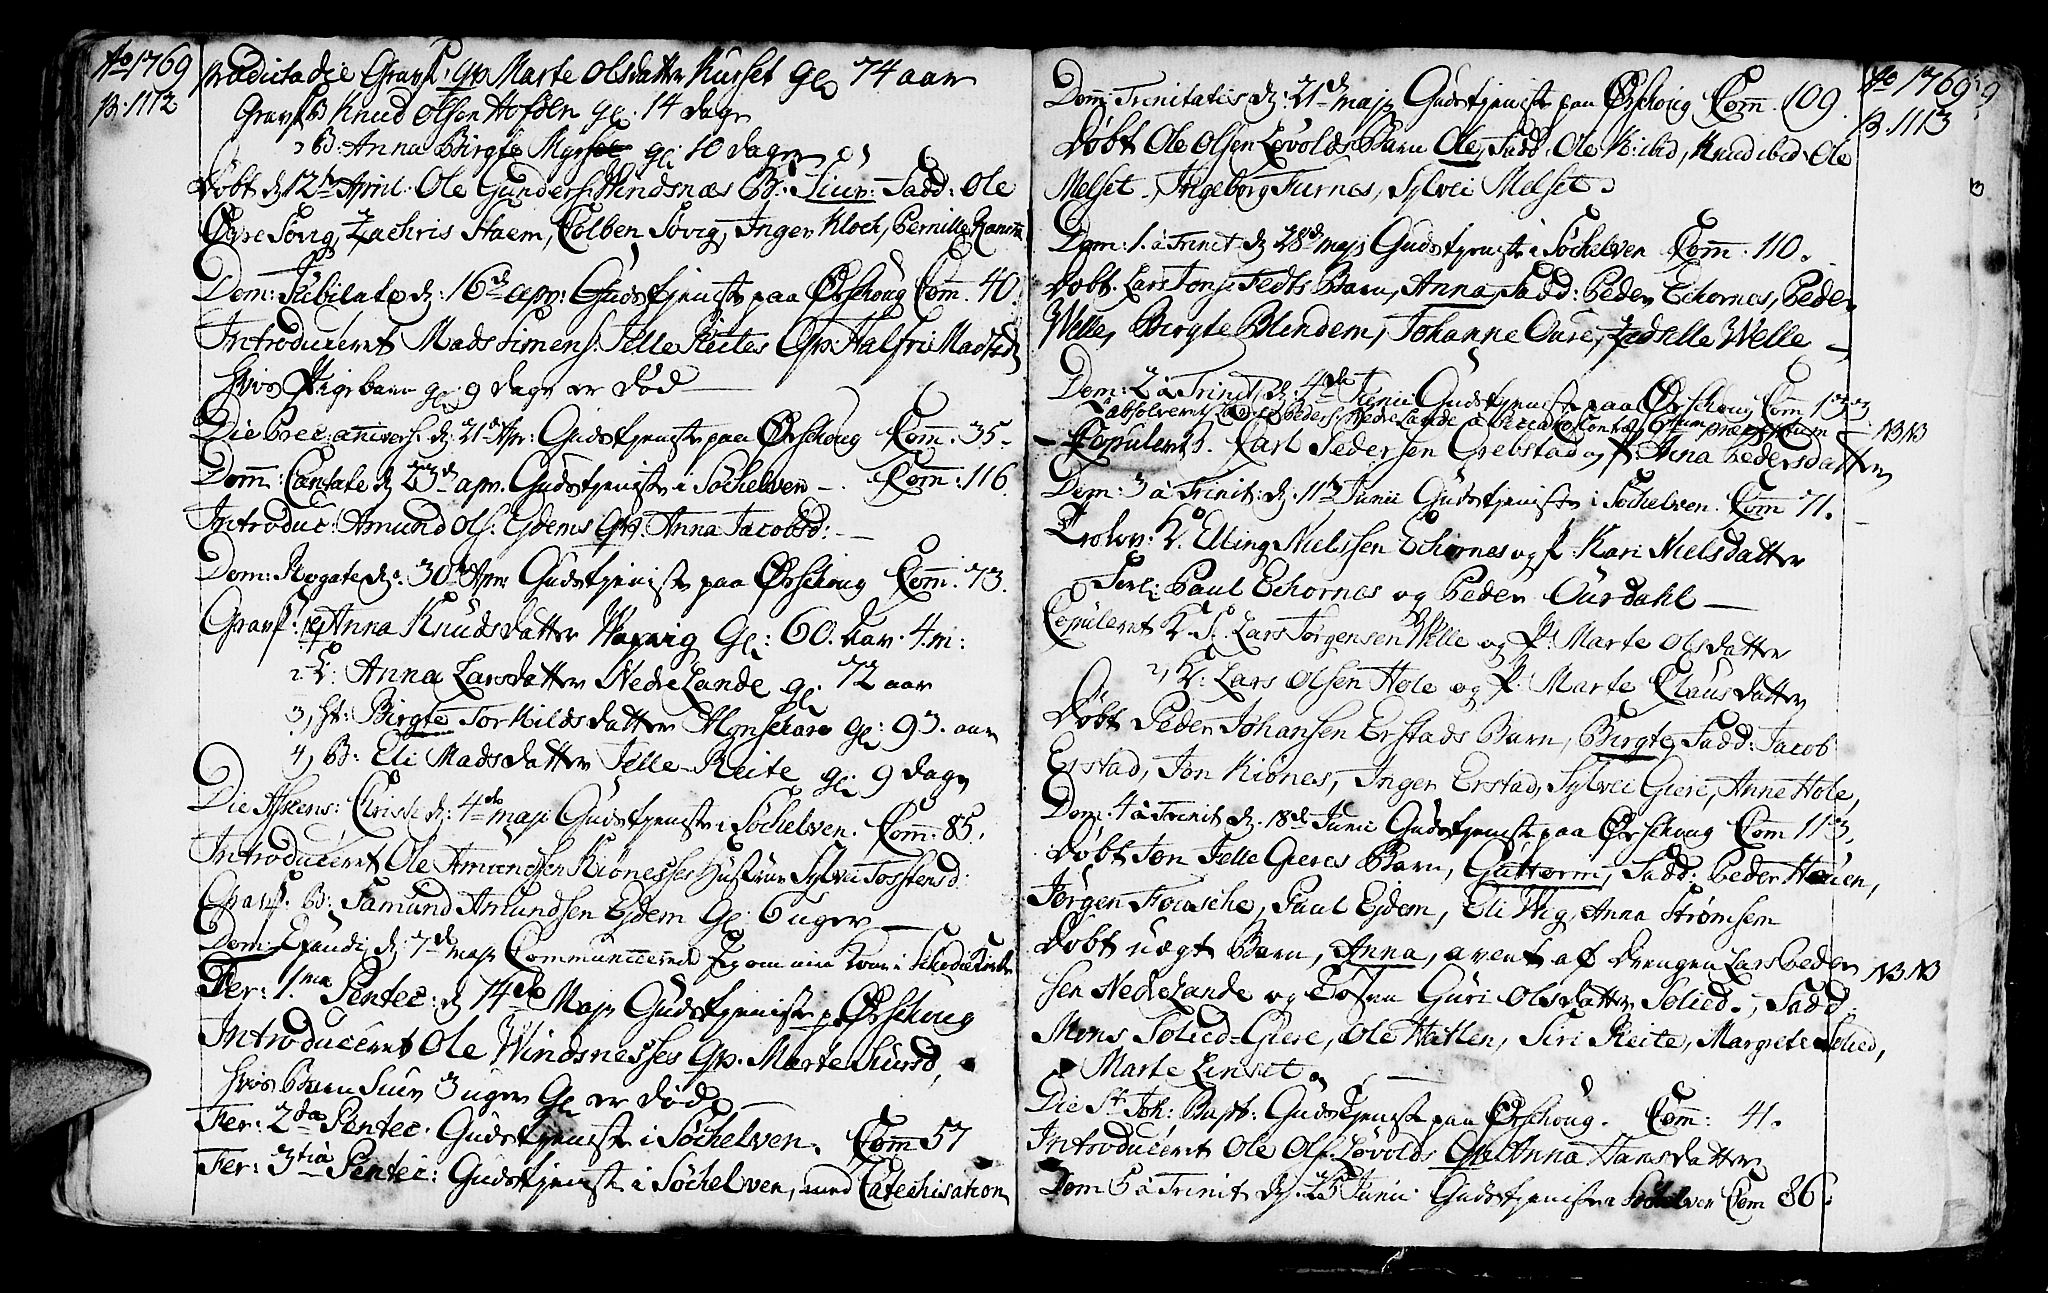 Ao 1769
B: 1112
prædicta die Gravf: qv Marte Olsdatter Kurset gl: 74 aar
Gravf: B Knud Olsen Hofden gl. 14 dage
2 B: Anna Birgte Myrset gl: 10 dager
Døbt d: 12te April. Ole Gunders: Windsnæs B: Siur: Fadd: Ole
Øvre Søvig, Zachris Haem, Colben Søvig, Inger Kloch, Pernille
Dom: Jubilate d: 16de apr: Gudstjeniste paa Ørschoug Com. 40.
Introduceret Mads Simens: Jelle Reites Qv: Halfri Madsd
hvis Pigebarn gl: 9 dage er død —
Die Prec: anivers: d: 21de Apr: Gudstjeniste paa Ørschoug Com. 35.
Dom: Cantate d 23de apr. Gudstjeniste i Søchelven —. Com: 116.
Introduc: Amund Ols: Eydems Qv: Anna Jacobsd: —
Dom: Rogate d: 30te Apr: Gudstjeniste paa Ørschoug Com. 73.
Gravf: 1 Anna Knudsdatter gl: 60. aar. 4. m:
2 Anna Larsdatter Nedre Lande gl. 72 aar
3, Birgte Torkildsdatter gl: 93. aar
4, B: Eli Madsdatter Jelle-Reite gl: 9 dage
Die Ascens: Christi d: 4de maji Gudstjeniste i Søchelven. Com. 85.
Introduceret Ole Amundsen Kionesses Hustrue Sylvei Tostensd:
Gravf: B: Samund Amundsen Eydem gl: 6 uger —
Dom: Exaudi d: 7de maji Communicerede Jeg om min Kone i
Fer: 1ma Pentec: d 14de Maji Gudstjeniste p: Ørschoug
Introduceret Ole Windsnesses Qv. Marte Siursd,
hvis Barn Siur 3 uger gl: er død.
Fer: 2da Pentec. Gudstjeniste i Søchelven. Com 57
Fer: 3tia Pentec: Gudstjeniste i Søchelven, med Catechisation
Ao 1769
B. 1113
Dom: Trinitatis d: 21de maji Gudstjeniste paa Ørschoug Com. 109.
Døbt Ole Olsen Løvolds Barn Ole, Fadd. Ole ibid, Knud ibid. Ole
Melset, Ingeborg Furnes, Sylvei Melset.
Dom: 1. a Trinit d: 28de maji Gudstjeniste i Søchelven Com: 110.
Døbt. Lars Jons: Fedts Barn, Anna, Fadd: Peder Echornes, Peder
Welle, Birgte Blindem, Johanne Oure, Zedselle Welle —
Dom: 2 a Trinit d: 4de Junii Gudstjeniste paa Ørschoug Com
absolveret Peders: Nedre Lande
NB NB
— Copuleret Carl Pedersen Grebstad og P: Anna Pedersdatter
Dom: 3 a Trinit: d: 11te Junii Gudstjeniste i Søchelven. Com 71.
Trolov: K: Elling Nielssen Echornes og P: Kari Nielsdatter
Forl: Paul Echornes og Peder Ourdahl —
Copuleret K Lars Jørgensen Welle og P: Marte Olsdatter
2, K: Lars Olsen Hole og P: Marte Clausdatter
Døbt Peder Johansen Erstads Barn, Birgte, Fadd: Jacob
Erstad, Jon Kiønes, Inger Erstad, Sylvei Giere, Anne Hole,
Dom. 4 a Trinit d. 18de Junii Gudstjeniste paa Ørschoug Com 113.
Døbt Jon Jelle Gieres Barn, Guttorm, Fadd: Peder Hauen,
Jørgen Fousche, Paul Eydem, Eli Wiig, Anna Strømsem
Døbt uægt Barn, Anna, avent af drengen Lars Peder
NB NB
sen Nedre Lande og Tøsen Guri Olsdatter Solied., Fadd.
Mons Solied-Giere, Ole Hatlen, Siri Reite, Margrete Solied,
Marte Linset.
Die St. Joh: Bapt: Gudstjeniste paa Ørschoug. Com: 41.
Introduceret Ole Ols: Løvolds Qv Anna Hansdatter
Dom 5 a Trinit d: 25 Junii Gudstjeniste i Søchelven Com 86.